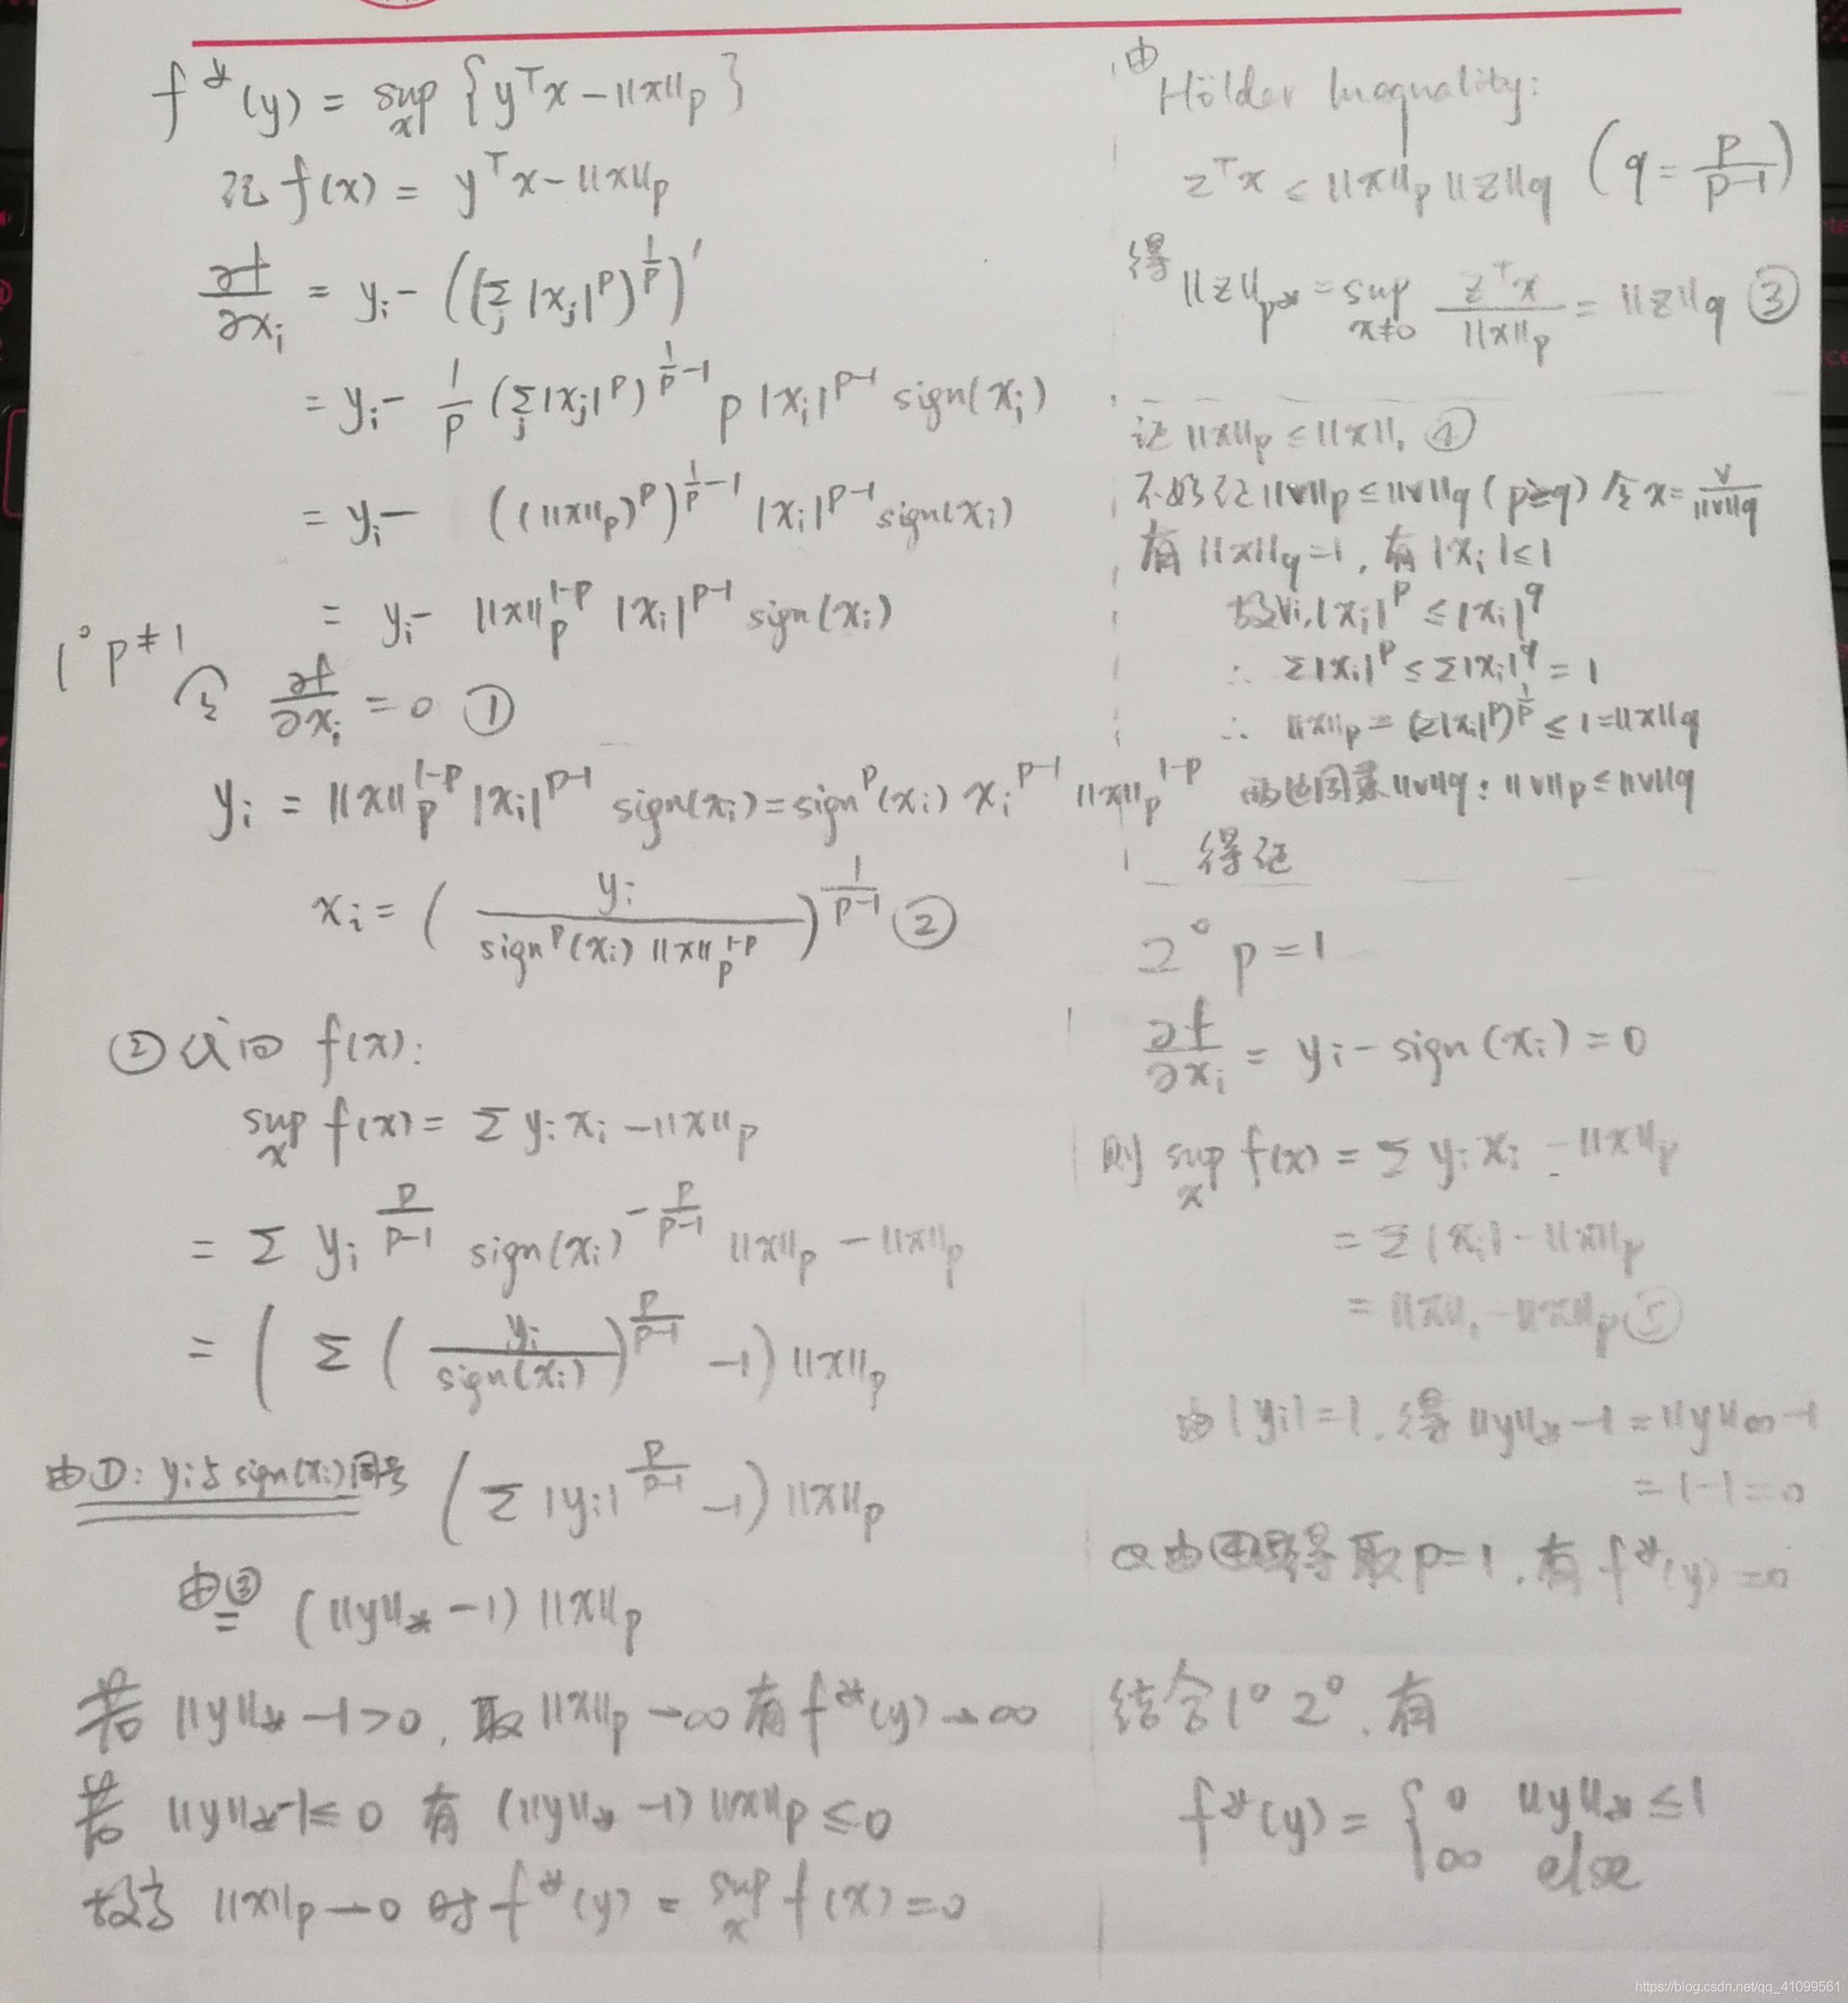 f*(y) = sup_x {yᵀx − ||x||_p}
记 f(x) = yᵀx − ||x||_p
∂f/∂x_i = y_i − ((Σ_j |x_j|^p)^{1/p})'
= y_i − 1/p (Σ_j |x_j|^p)^{1/p − 1} p |x_i|^{p−1} sign(x_i)
= y_i − ((||x||_p)^p)^{1/p − 1} |x_i|^{p−1} sign(x_i)
= y_i − ||x||_p^{1−p} |x_i|^{p−1} sign(x_i)
1° p≠1
令 ∂f/∂x_i = 0 ①
y_i = ||x||_p^{1−p} |x_i|^{p−1} sign(x_i) = sign^p(x_i) x_i^{p−1} ||x||_p^{1−p}
x_i = (y_i / (sign^p(x_i) ||x||_p^{1−p}))^{1/(p−1)} ②
②代回 f(x):
sup_x f(x) = Σ y_i x_i − ||x||_p
= Σ y_i^{p/(p−1)} sign(x_i)^{−p/(p−1)} ||x||_p − ||x||_p
= (Σ (y_i / sign(x_i))^{p/(p−1)} − 1) ||x||_p
由①: y_i与sign(x_i)同号 (Σ |y_i|^{p/(p−1)} − 1) ||x||_p
由③ = (||y||_* − 1) ||x||_p
若 ||y||_* − 1 > 0, 取 ||x||_p → ∞ 有 f*(y) → ∞
若 ||y||_* − 1 ≤ 0 有 (||y||_* − 1) ||x||_p ≤ 0
故当 ||x||_p → 0 时 f*(y) = sup_x f(x) = 0
由
Hölder Inequality:
zᵀx ≤ ||x||_p ||z||_q (q = p/(p−1))
得 ||z||_{p*} = sup_{x≠0} zᵀx / ||x||_p = ||z||_q ③
证 ||x||_p ≤ ||x||_1 ④
不妨证 ||v||_p ≤ ||v||_q (p≥q) 令 x = v/||v||_q
有 ||x||_q = 1, 有 |x_i| ≤ 1
故∀i, |x_i|^p ≤ |x_i|^q
∴ Σ|x_i|^p ≤ Σ|x_i|^q = 1
∴ ||x||_p = (Σ|x_i|^p)^{1/p} ≤ 1 = ||x||_q
两边同乘||v||_q: ||v||_p ≤ ||v||_q
得证
2° p = 1
∂f/∂x_i = y_i − sign(x_i) = 0
则 sup_x f(x) = Σ y_i x_i − ||x||_p
= Σ |x_i| − ||x||_p
= ||x||_1 − ||x||_p ⑤
由 |y_i| = 1, 得 ||y||_* − 1 = ||y||_∞ − 1
= 1 − 1 = 0
由④⑤得 取 p=1, 有 f*(y) = 0
结合1° 2°, 有
f*(y) = { 0 ||y||_* ≤ 1
∞ else
https://blog.csdn.net/qq_41099561